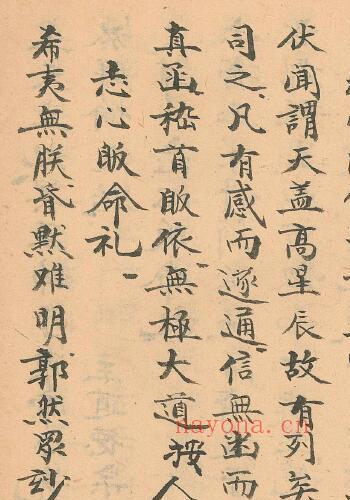 伏聞謂天盖高星辰故有列矣
司之凡有感而遂通信無幽而
真函嵇首皈依無極大道按人
志心皈命礼
希夷無朕昏默难明郭然眾妙
nayona.cn